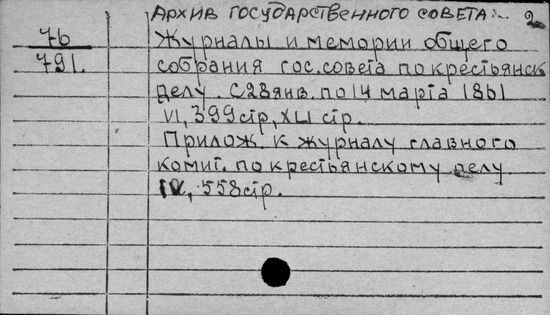 Архив государственного совета... 2
76
791.
Журналы и мемории общего
собрания гос. совета по крестьянск
делу. С 28 янв. по 14 марта 1861
VI, 399 стр, XLI стр.
Прилож. к журналу главного
комит. по крестьянскому делу
IV, 558 стр.